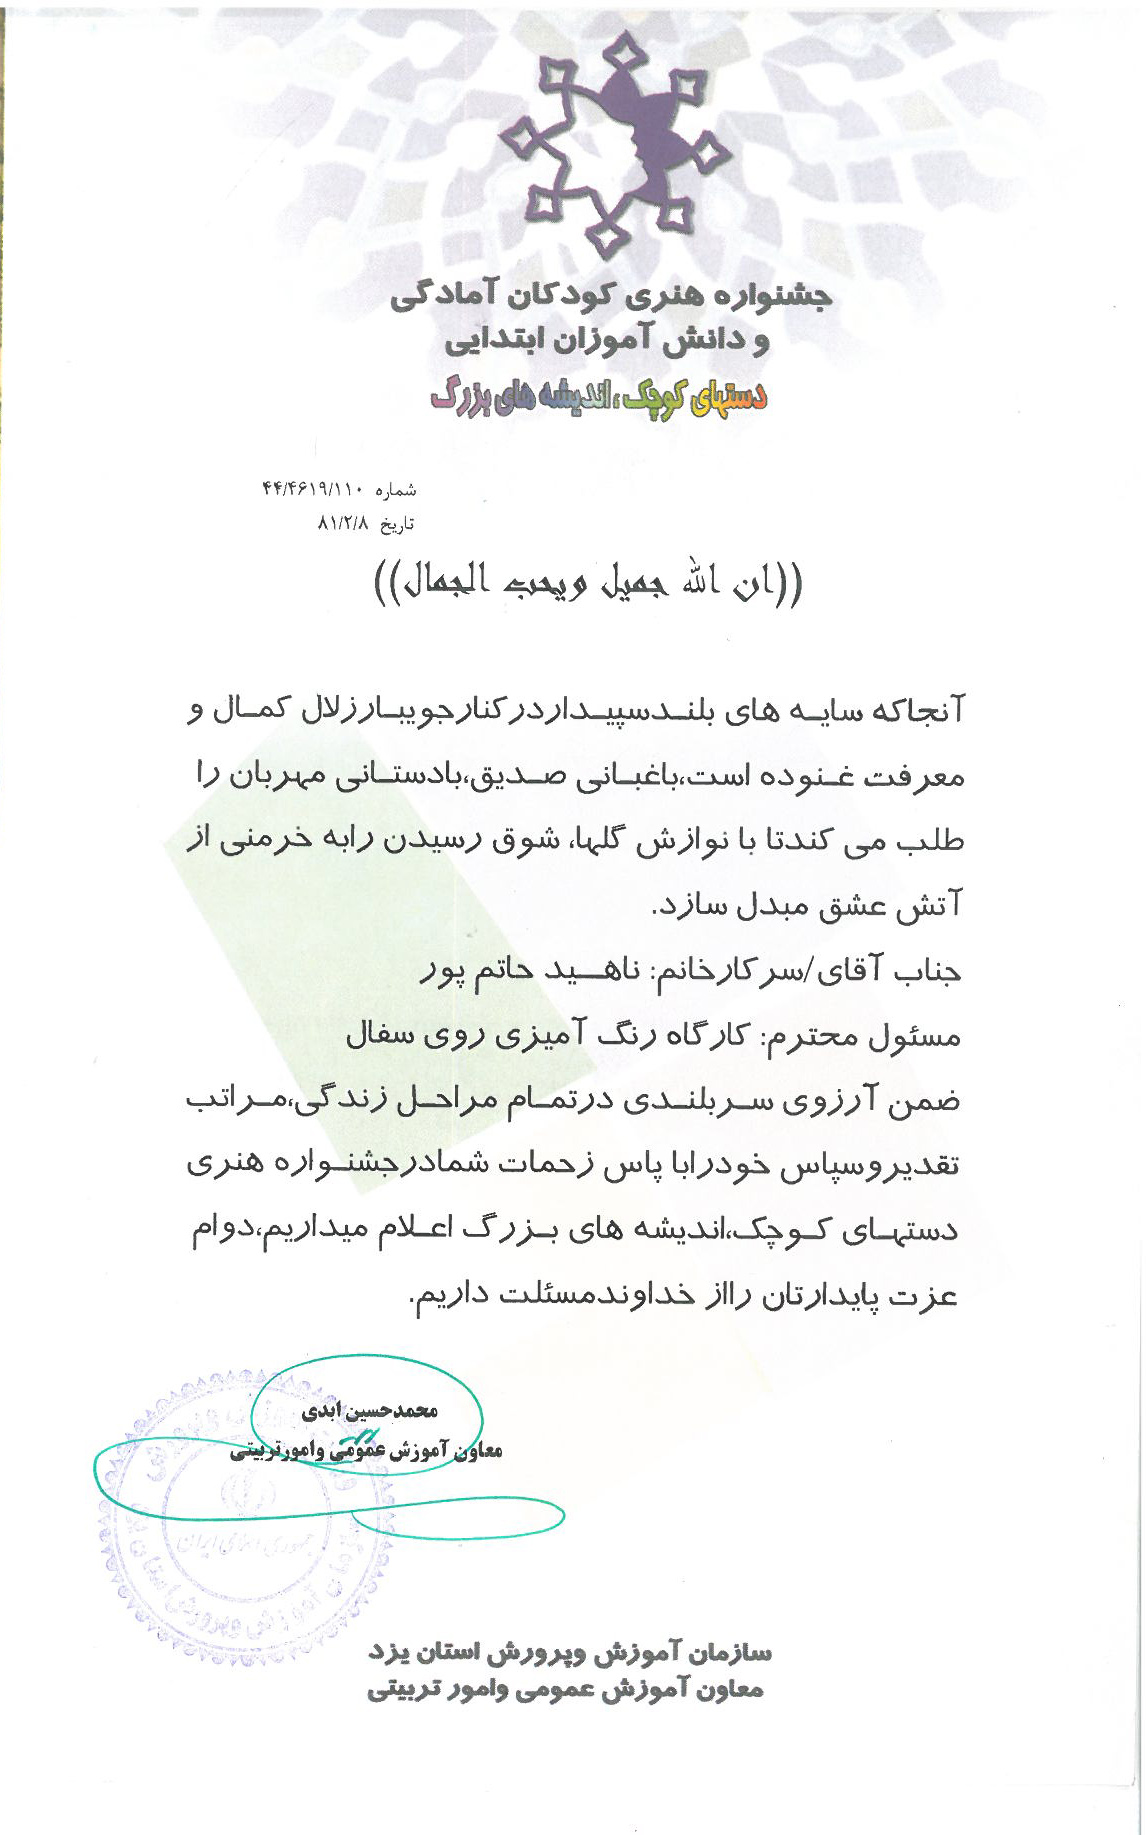 جشنواره هنری کودکان آمادگی
و دانش آموزان ابتدایی
دستهای کوچک، اندیشه های بزرگ
شماره ۴۴/۴۶۱۹/۱۱۰
تاریخ ۸۱/۲/۸
((ان الله جمیل ویحب الجمال))
آنجاکه سایه های بلندسپیداردرکنارجویبارزلال کمال و
معرفت غنوده است،باغبانی صدیق،بادستانی مهربان را
طلب می کندتا با نوازش گلها، شوق رسیدن رابه خرمنی از
آتش عشق مبدل سازد.
جناب آقای/سرکارخانم: ناهید حاتم پور
مسئول محترم: کارگاه رنگ آمیزی روی سفال
ضمن آرزوی سربلندی درتمام مراحل زندگی،مراتب
تقدیروسپاس خودرابا پاس زحمات شمادرجشنواره هنری
دستهای کوچک،اندیشه های بزرگ اعلام میداریم،دوام
عزت پایدارتان رااز خداوندمسئلت داریم.
محمدحسین ابدی
معاون آموزش عمومی وامورتربیتی
جمهوری اسلامی ایران
سازمان آموزش وپرورش استان یزد
سازمان آموزش وپرورش استان یزد
معاون آموزش عمومی وامور تربیتی